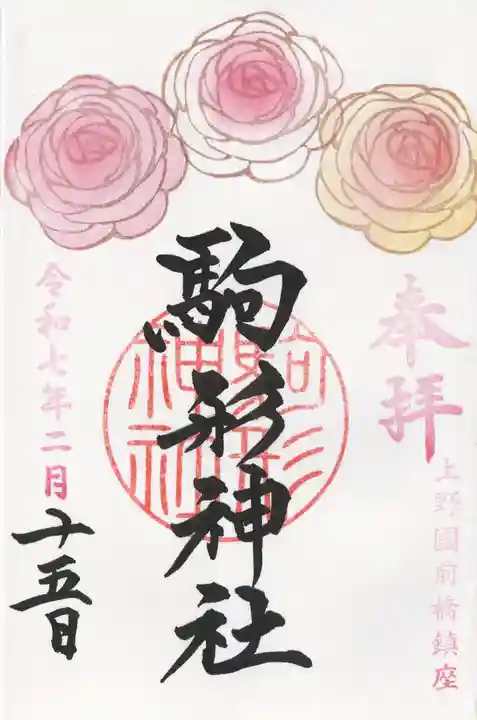 奉拝
上野國前橋鎮座
駒形神社
駒形
神社
令和七年二月
十五日